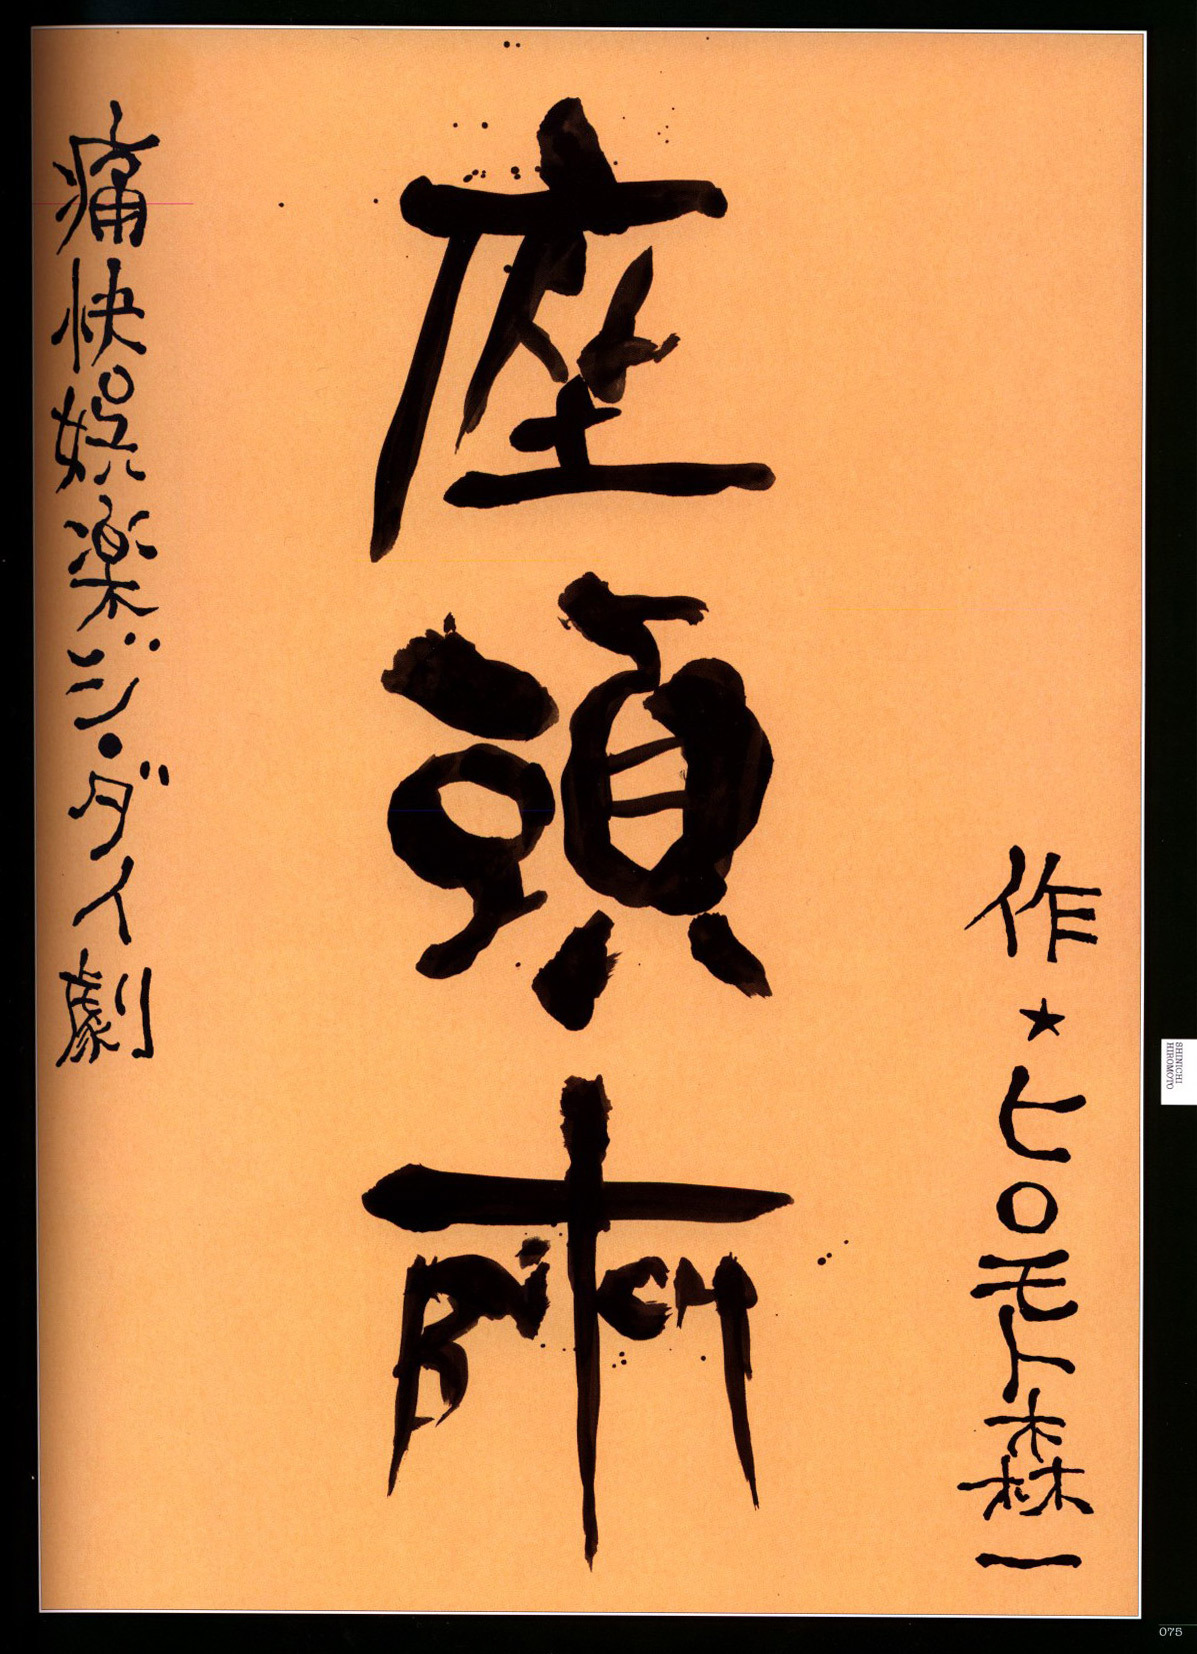 作★ヒロモト森一
座頭市
BiTCH
痛快娯楽ジ・ダイ劇
SHINICHI
HIROMOTO
075